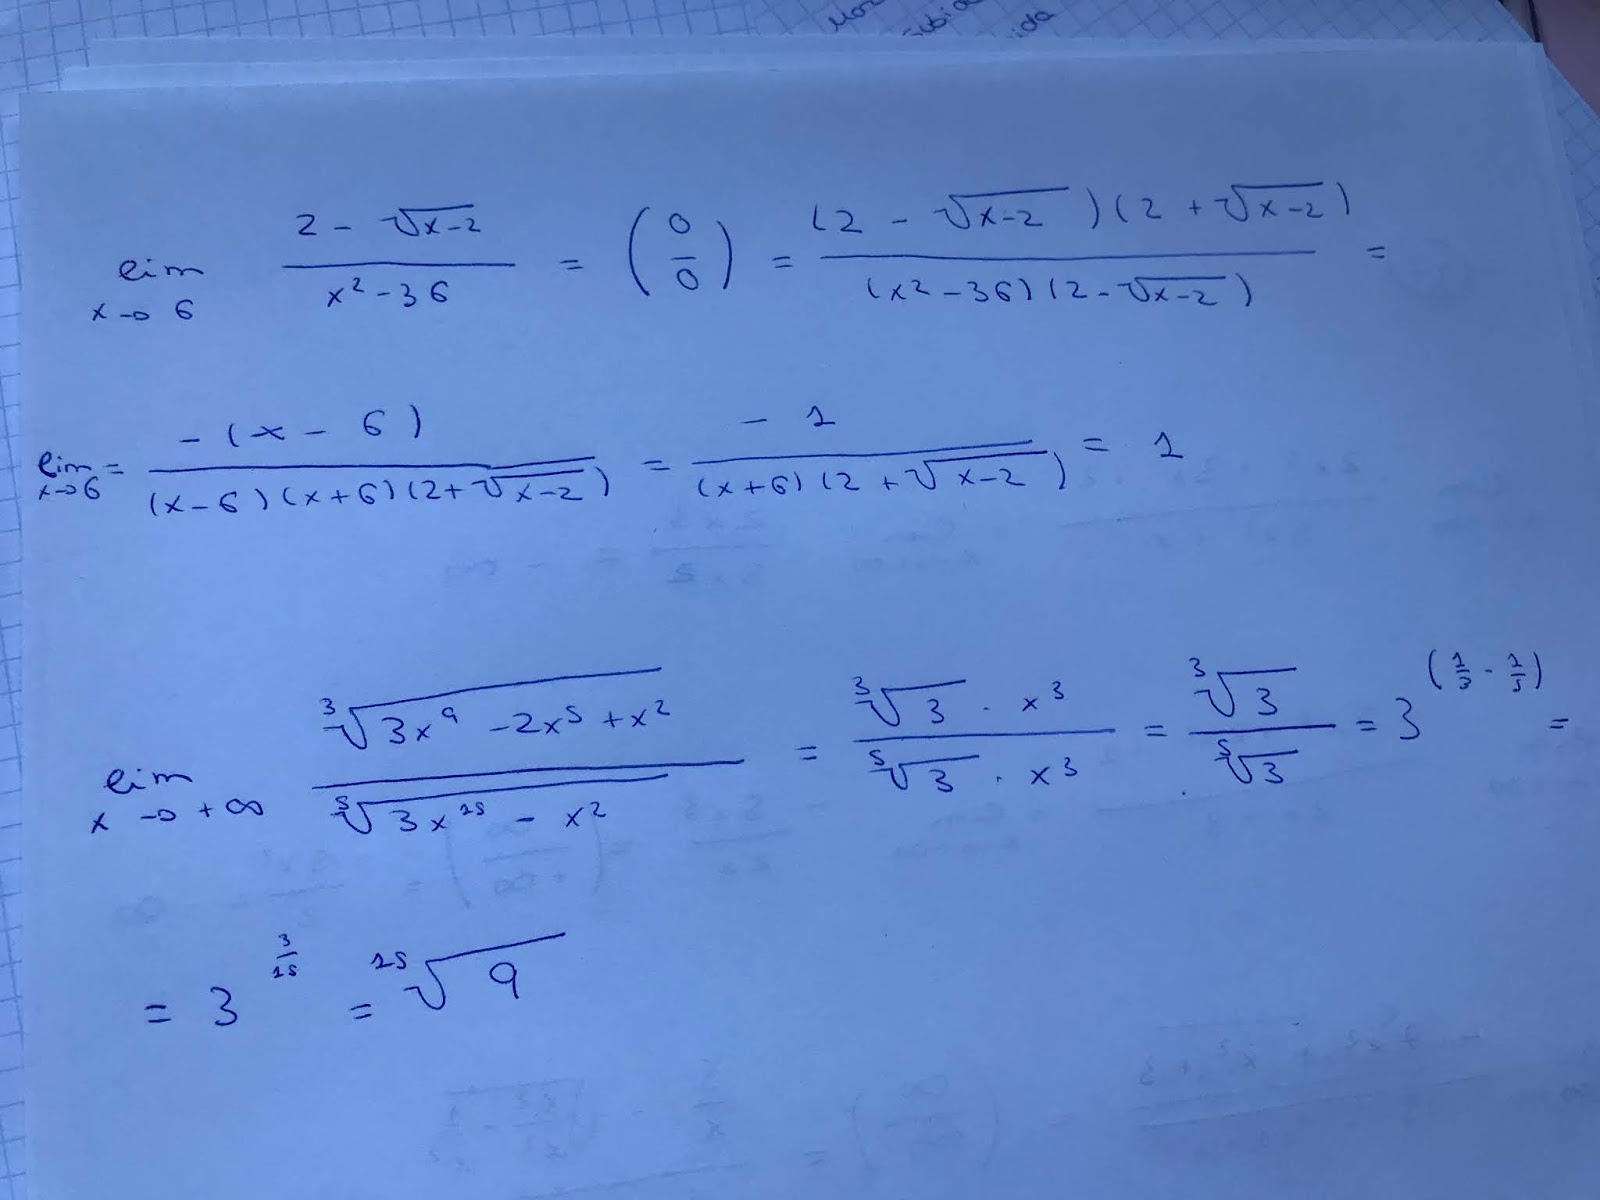 lim x→6 (2 - √(x-2)) / (x² - 36) = (0/0) = ((2 - √(x-2))(2 + √(x-2))) / ((x² - 36)(2 - √(x-2))) =
lim x→6 = -(x - 6) / ((x-6)(x+6)(2+√(x-2))) = -1 / ((x+6)(2+√(x-2))) = 1
lim x→+∞ ∛(3x⁹ - 2x⁵ + x²) / ⁵√(3x¹⁵ - x²) = (∛3 · x³) / (⁵√3 · x³) = ∛3 / ⁵√3 = 3^(1/3 - 1/5) =
= 3^(3/15) = ¹⁵√9